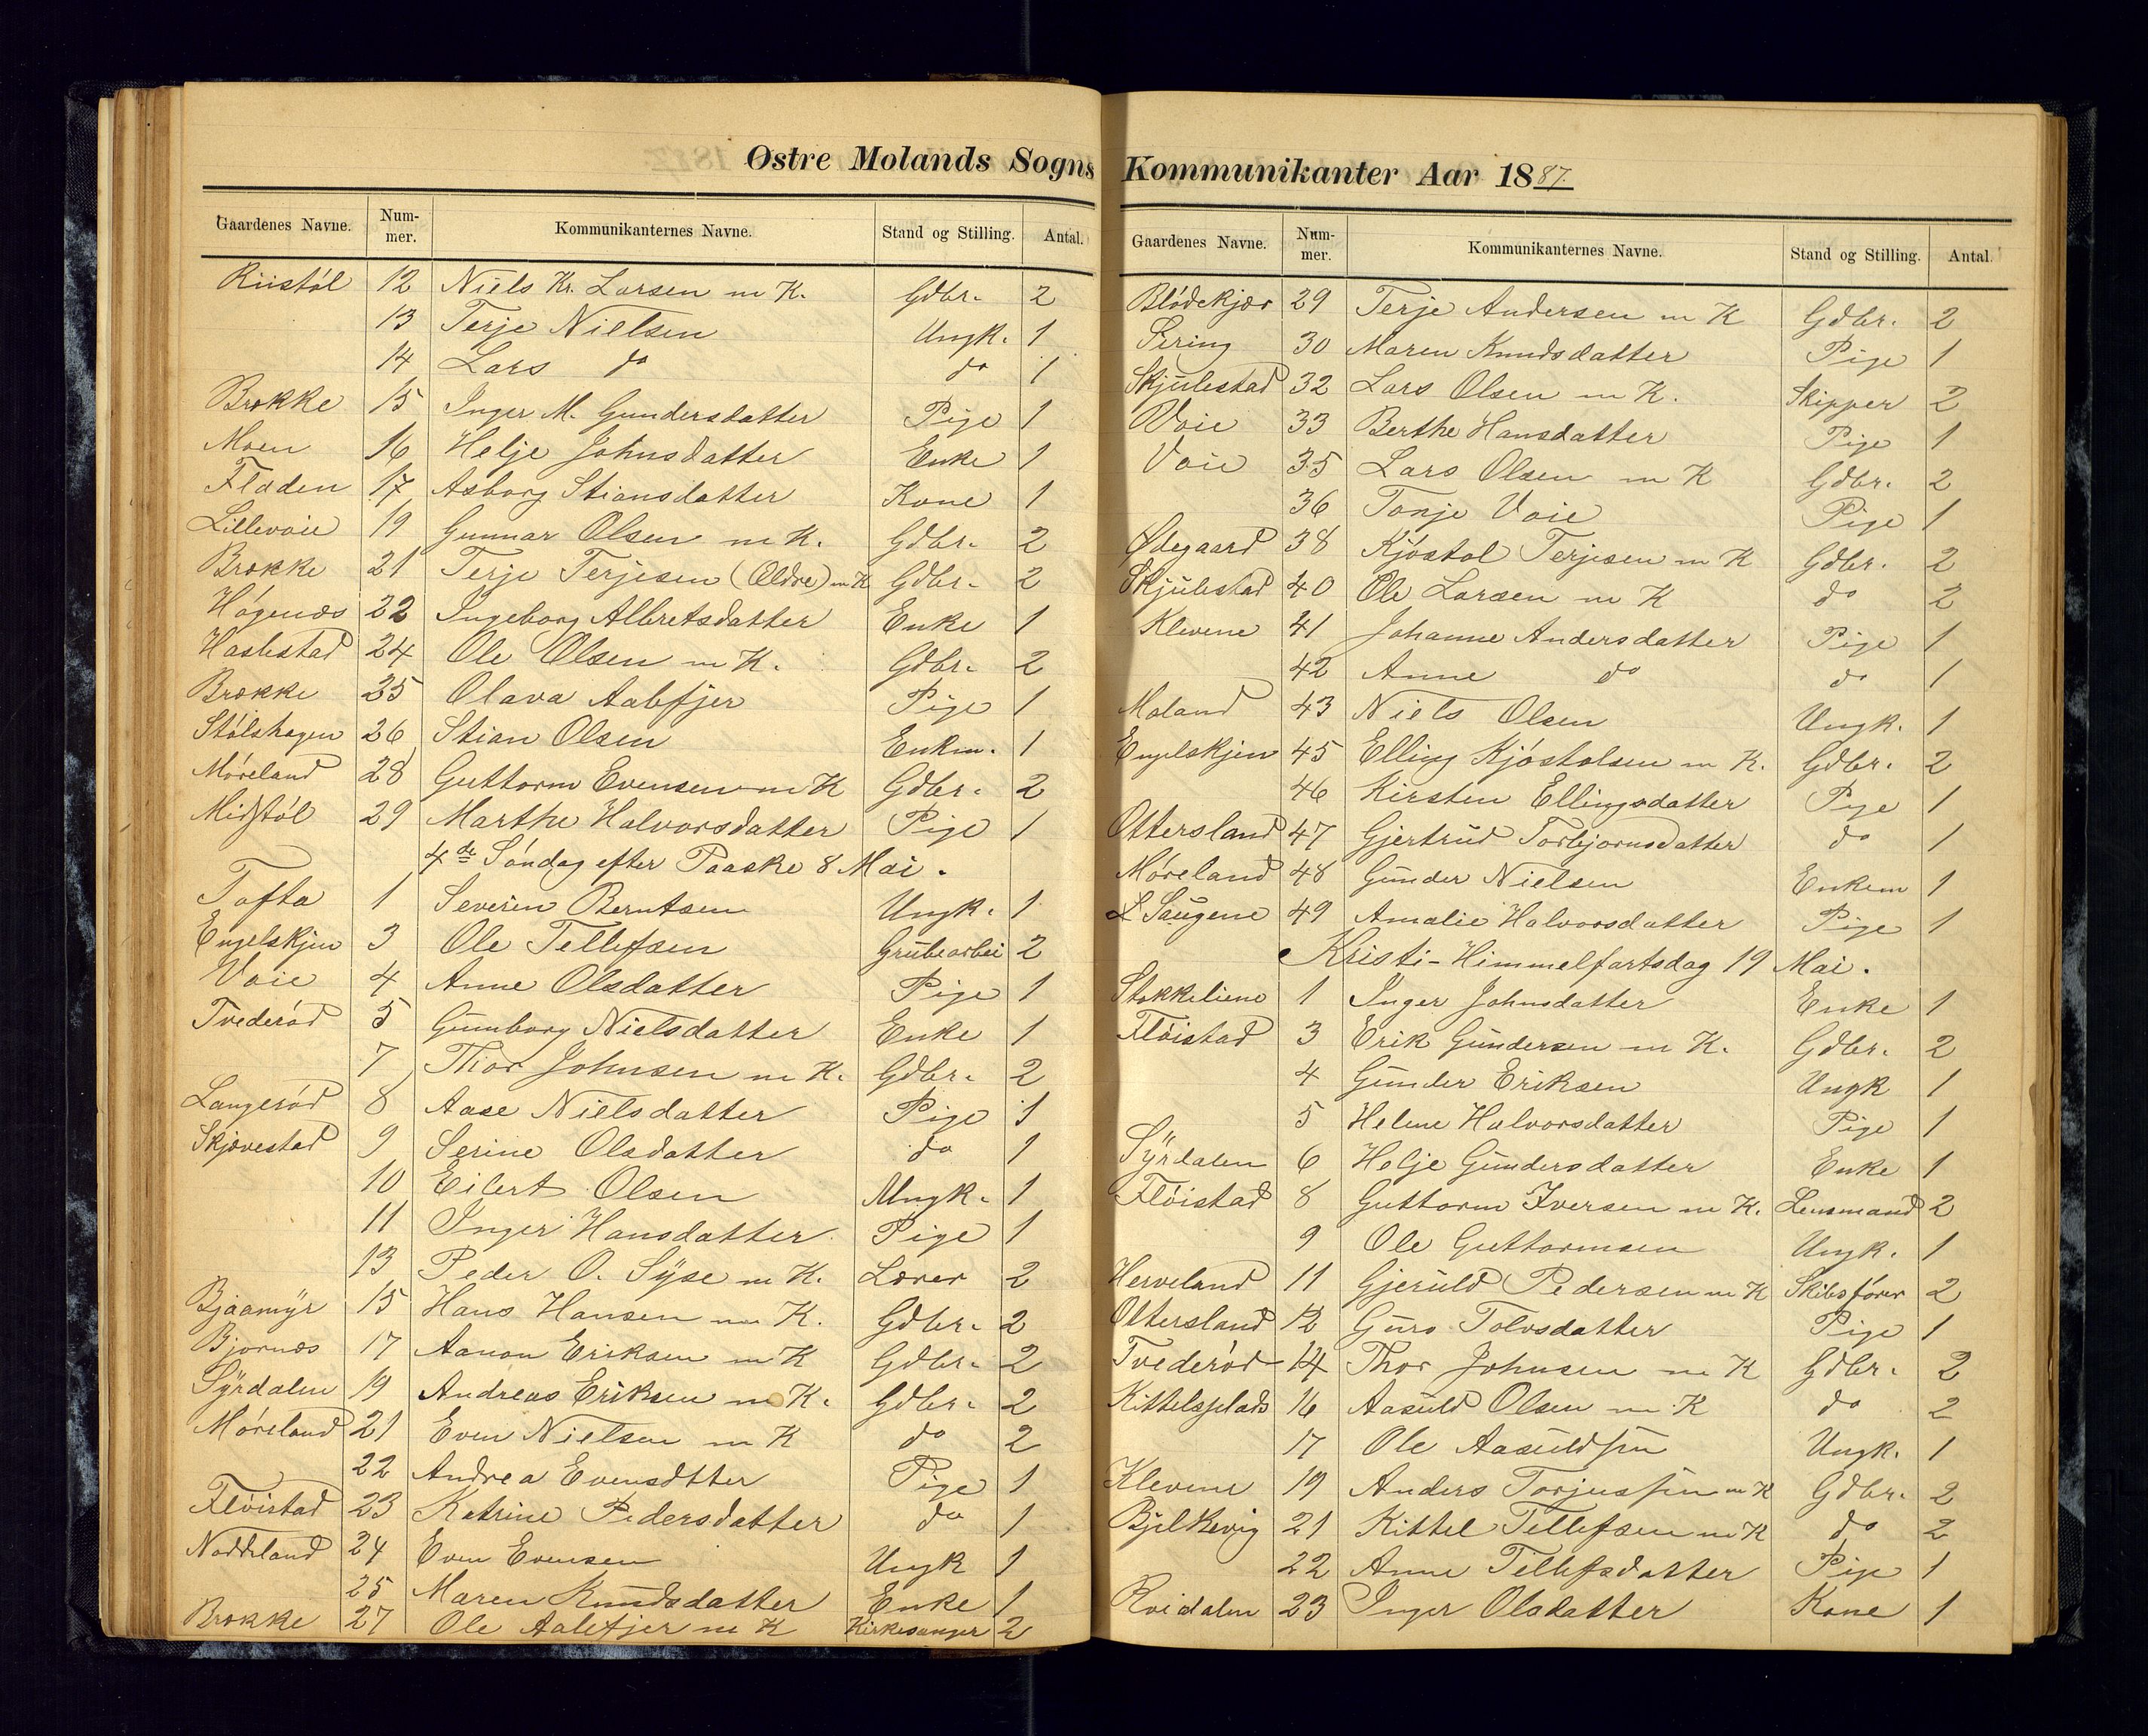 Østre Molands Sogns
Gaardenes Navne. Num-mer. Kommunikanternes Navne. Stand og Stilling. Antal.
Riistöl 12 Niels Kr. Larsen m K. Gdbr. 2
13 Terje Nielsen Ungk. 1
14 Lars do do 1
Brekke 15 Inger M. Gundersdatter Pige 1
Moen 16 Helje Johnsdatter Enke 1
Floden 17 Asborg Stiansdatter Kone 1
Lillevoie 19 Gunnar Olsen m K. Gdbr. 2
Brekke 21 Terje Terjesen (Ældre) m K Gdbr. 2
Högenæs 22 Ingeborg Albretsdatter Enke 1
Haslestad 24 Ole Olsen m K. Gdbr. 2
Brække 25 Olava Aalefjer Pige 1
Stölshagen 26 Stian Olsen Enkm. 1
Möreland 28 Guttorm Evensen m K Gdbr. 2
Midstöl 29 Marthe Halvorsdatter Pige 1
4de Söndag efter Paaske 8 Mai.
Tofta 1 Severin Berntsen Ungk. 1
Engelskjen 3 Ole Tellefsen Grubearbei 2
Voie 4 Anne Olsdatter Pige 1
Tvederöd 5 Gunnborg Nielsdatter Enke 1
7 Thor Johnsen m K. Gdbr. 2
Langeröd 8 Aase Nielsdatter Pige 1
Skjævestad 9 Serine Olsdatter do 1
10 Eilert Olsen Ungk. 1
11 Inger Hansdatter Pige 1
13 Peder O. Syse m K. Lærer 2
Bjaamyr 15 Hans Hansen m K. Gdbr. 2
Bjornæs 17 Aanon Eriksen m K Gdbr. 2
Syrdalen 19 Andreas Eriksen m K. Gdbr. 2
Möreland 21 Even Nielsen m K do 2
22 Andrea Evensdtter Pige 1
Flöistad 23 Katrine Pedersdatter do 1
Noddeland 24 Even Evensen Ungk 1
25 Maren Knudsdatter Enke 1
Brekke 27 Ole Aalefjer m K Kirkesanger 2
Kommunikanter Aar 1887.
Gaardenes Navne. Num-mer. Kommunikanternes Navne. Stand og Stilling. Antal.
Blödekjær 29 Terje Andersen m K Gdbr. 2
Sering 30 Maren Knudsdatter Pige 1
Skjulestad 32 Lars Olsen m K. Skipper 2
Voie 33 Berthe Hansdatter Pige 1
Voie 35 Lars Olsen m K Gdbr. 2
36 Tonje Voie Pige 1
Ødegaard 38 Kjöstol Terjesen m K Gdbr. 2
Skjulestad 40 Ole Larsen m K do 2
Klevene 41 Johanne Andersdatter Pige 1
42 Anne do do 1
Moland 43 Niels Olsen Ungk. 1
Engelskjen 45 Elling Kjöstolsen m K. Gdbr. 2
46 Kirsten Ellingsdatter Pige 1
Ottersland 47 Gjertrud Torbjornsdatter do 1
Möreland 48 Gunder Nielsen Enkem 1
L Saugene 49 Amalie Halvorsdatter Pige 1
Kristi-Himmelfartsdag 19 Mai.
Stokkeliene 1 Inger Johnsdatter Enke 1
Flöistad 3 Erik Gundersen m K. Gdbr. 2
4 Gunder Eriksen Ungk 1
5 Helene Halvorsdatter Pige 1
Syrdalen 6 Helje Gundersdatter Enke 1
Flöistad 8 Guttorm Iversen m K. Lensmand 2
9 Ole Guttormsen Ungk. 1
Herveland 11 Gjeruld Pedersen m K Skibsförer 2
Ottersland 12 Guro Tolvsdatter Pige 1
Tvederöd 14 Thor Johnsen m K Gdbr. 2
Kittelsplads 16 Aasuld Olsen m K do 2
17 Ole Aasuldsen Ungk. 1
Klevene 19 Anders Torjussen m K Gdbr. 2
Bjelkevig 21 Kittel Tellefsen m K do 2
22 Anne Tellefsdatter Pige 1
Rvidalen 23 Inger Olsdatter Kone 1